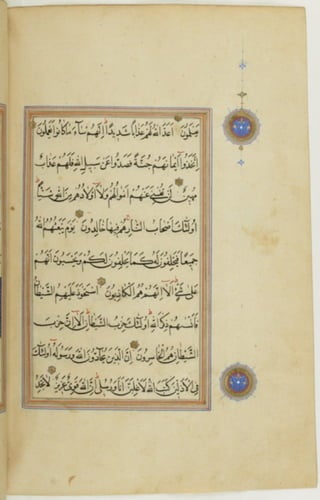 يعلمون اعد الله لهم عذابا شديدا انهم ساء ما كانوا يعملون
اتخذوا ايمانهم جنة فصدوا عن سبيل الله فلهم عذاب
مهين لن تغني عنهم اموالهم ولا اولادهم من الله شيئا
اولئك اصحاب النار هم فيها خالدون يوم يبعثهم الله
جميعا فيحلفون له كما يحلفون لكم ويحسبون انهم
على شيء الا انهم هم الكاذبون استحوذ عليهم الشيطان
فانسيهم ذكر الله اولئك حزب الشيطان الا ان حزب
الشيطان هم الخاسرون ان الذين يحادون الله ورسوله اولئك
في الاذلين كتب الله لاغلبن انا ورسلي ان الله قوي عزيز لا تجد